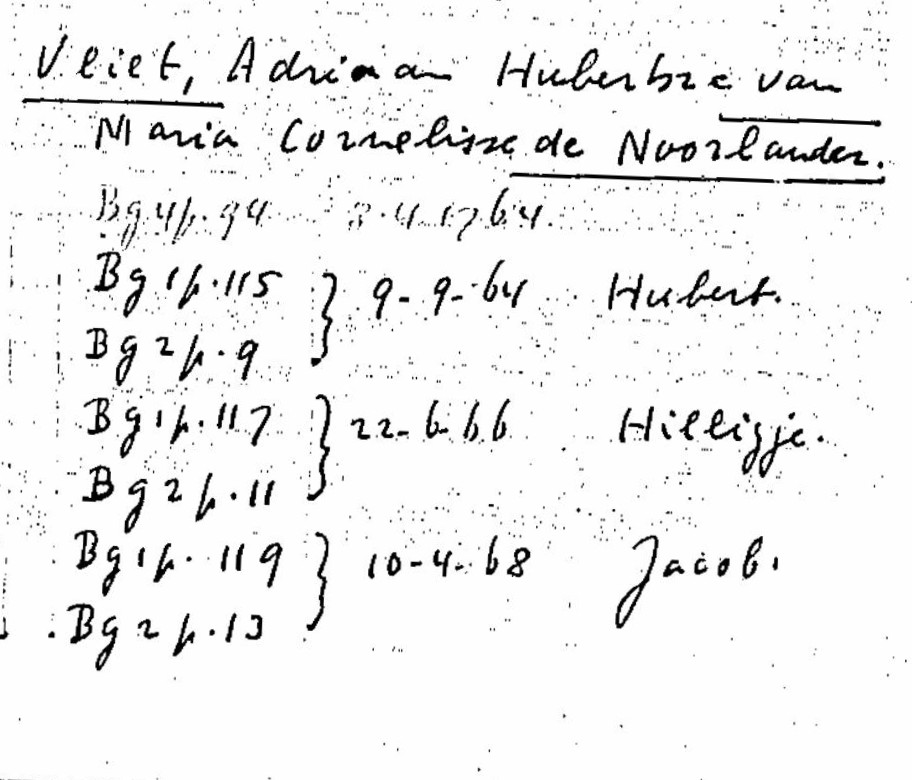 Vliet, Adriaan Hubertsze van
Maria Cornelisse de Noorlander.
Bg 4 p. 94 3-4-1764.
Bg 1 p. 115 } 9-9-64 Hubert.
Bg 2 p. 9
Bg 1 p. 117 } 22-6-66 Hilligje.
Bg 2 p. 11
Bg 1 p. 119 } 10-4-68 Jacob.
Bg 2 p. 13